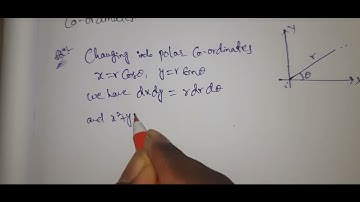 Co-ordinates
Changing into polar Co-ordinates
x=rCosθ, y=rSinθ
we have dxdy = rdrdθ
and x²+y
y
r
θ
x